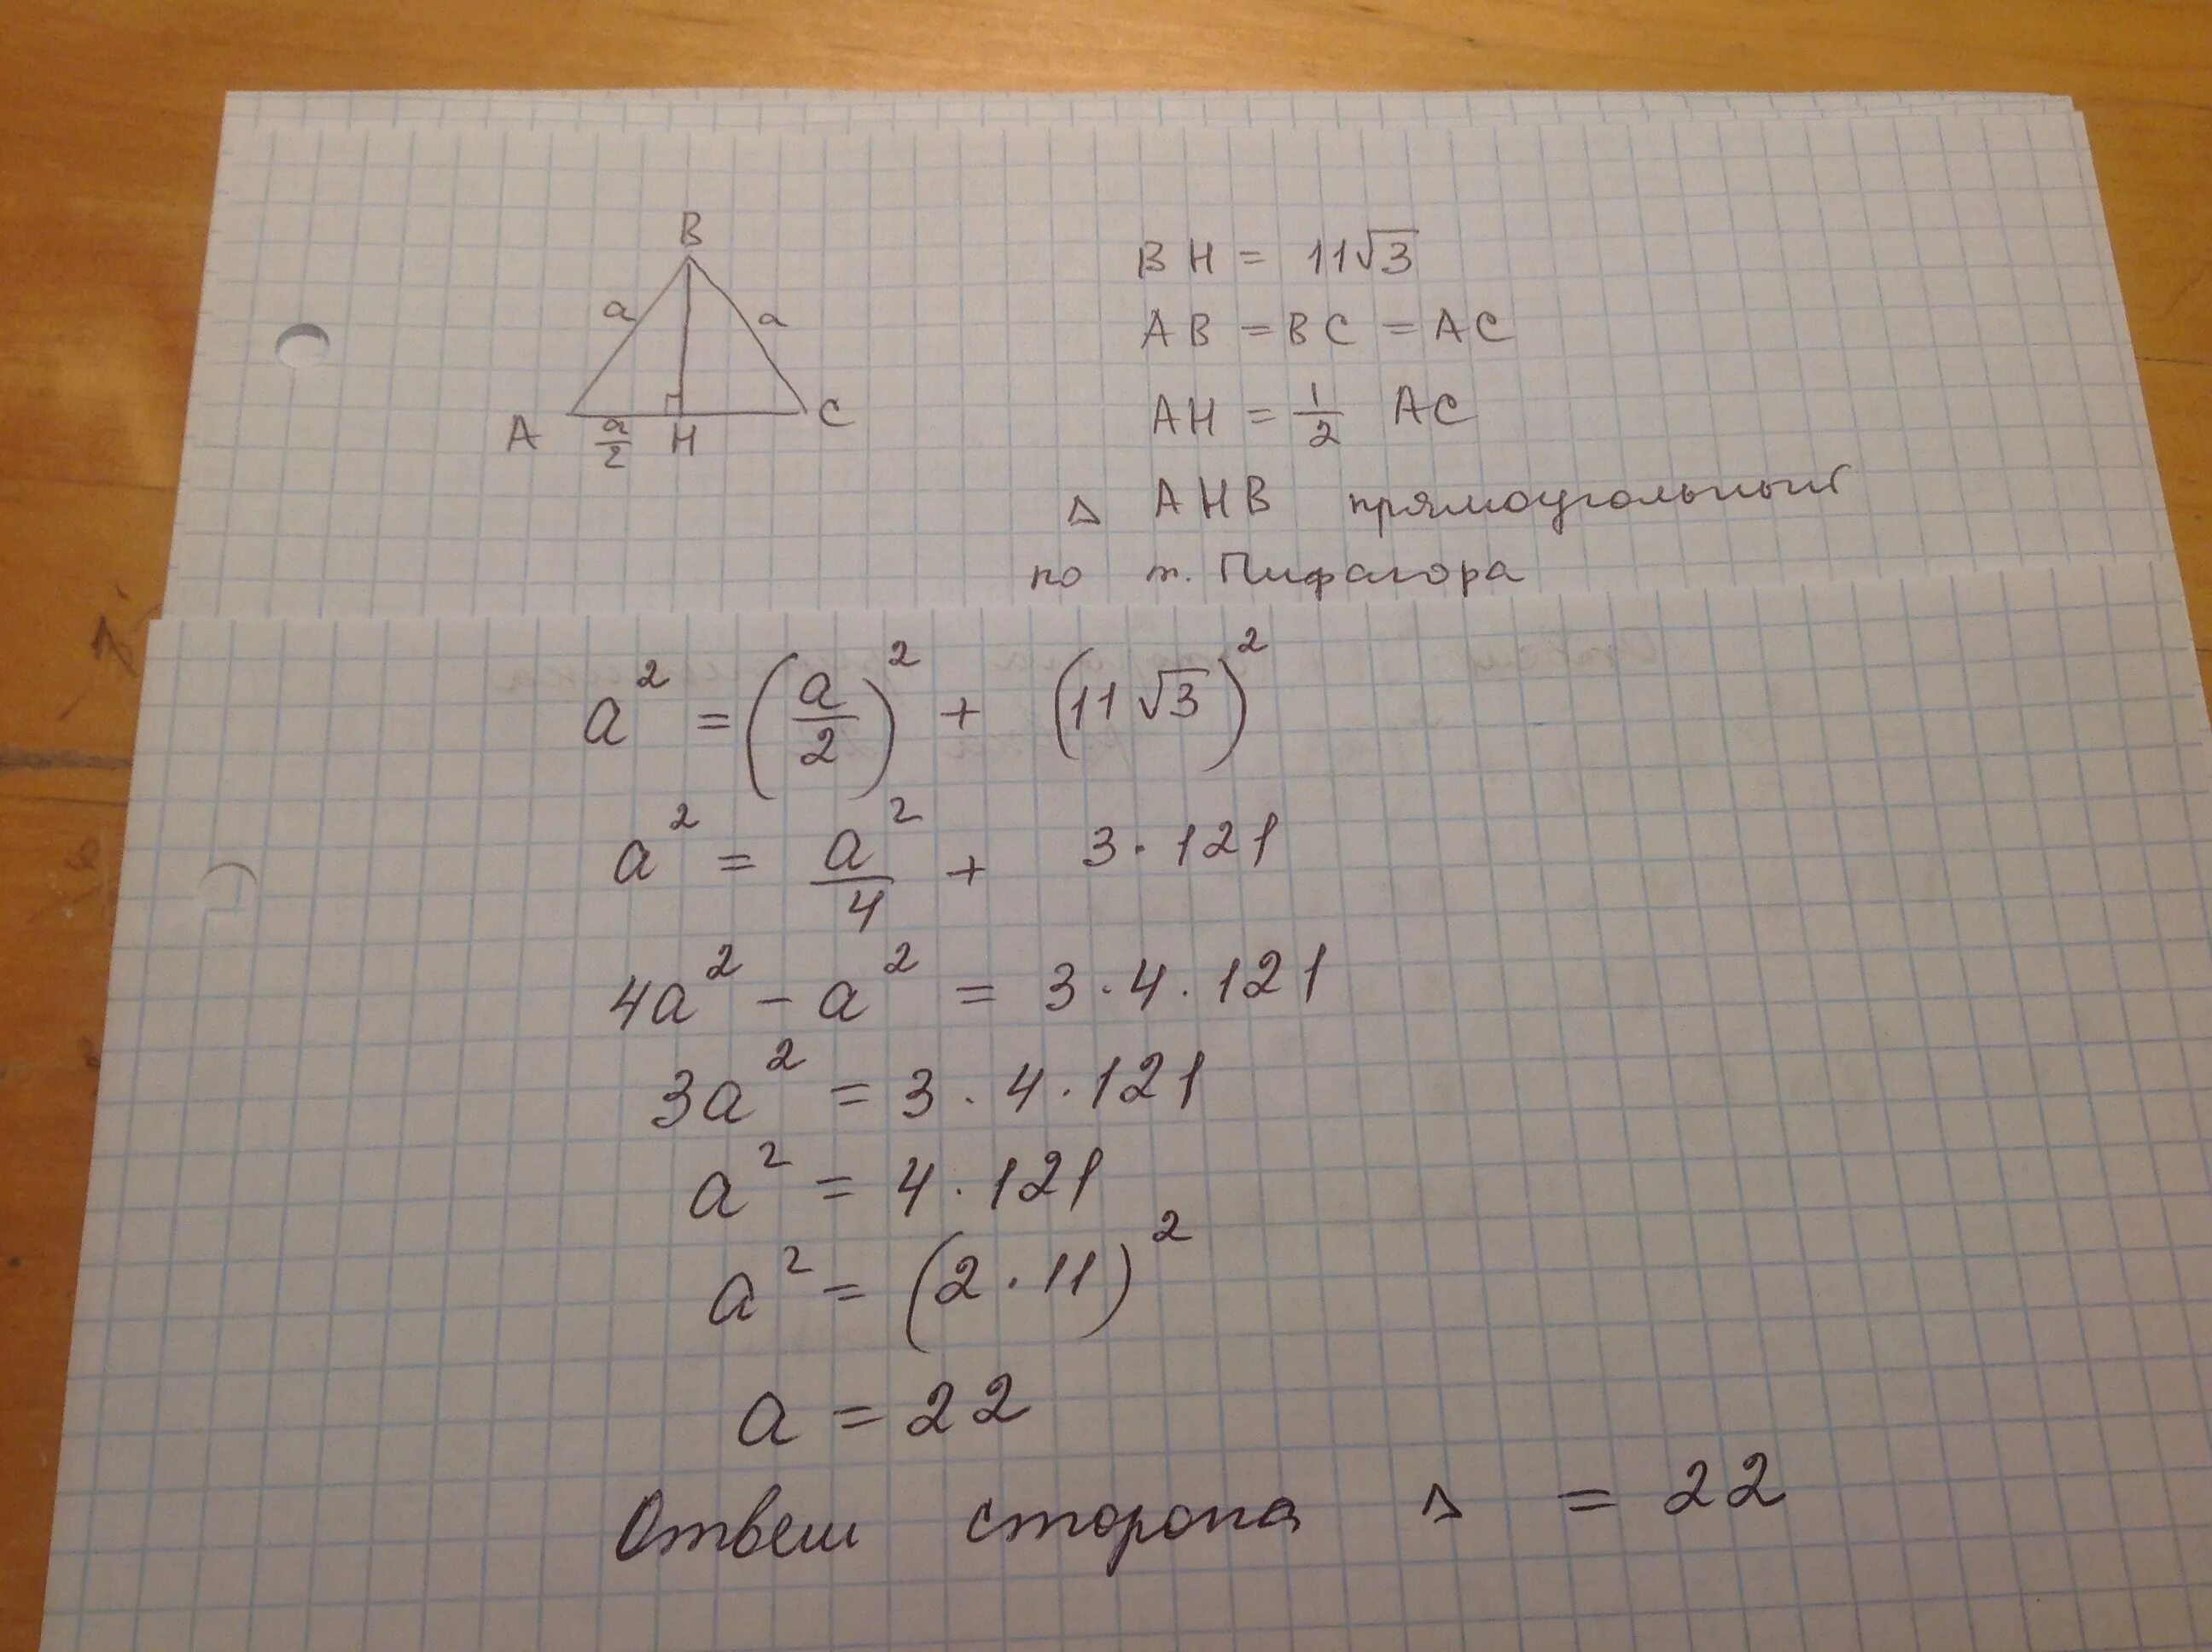 B
a a
A a/2 H C
BH = 11√3
AB = BC = AC
AH = 1/2 AC
△ AHB прямоугольный
по т. Пифагора
a² = (a/2)² + (11√3)²
a² = a²/4 + 3·121
4a² - a² = 3·4·121
3a² = 3·4·121
a² = 4·121
a² = (2·11)²
a = 22
Ответ сторона △ = 22